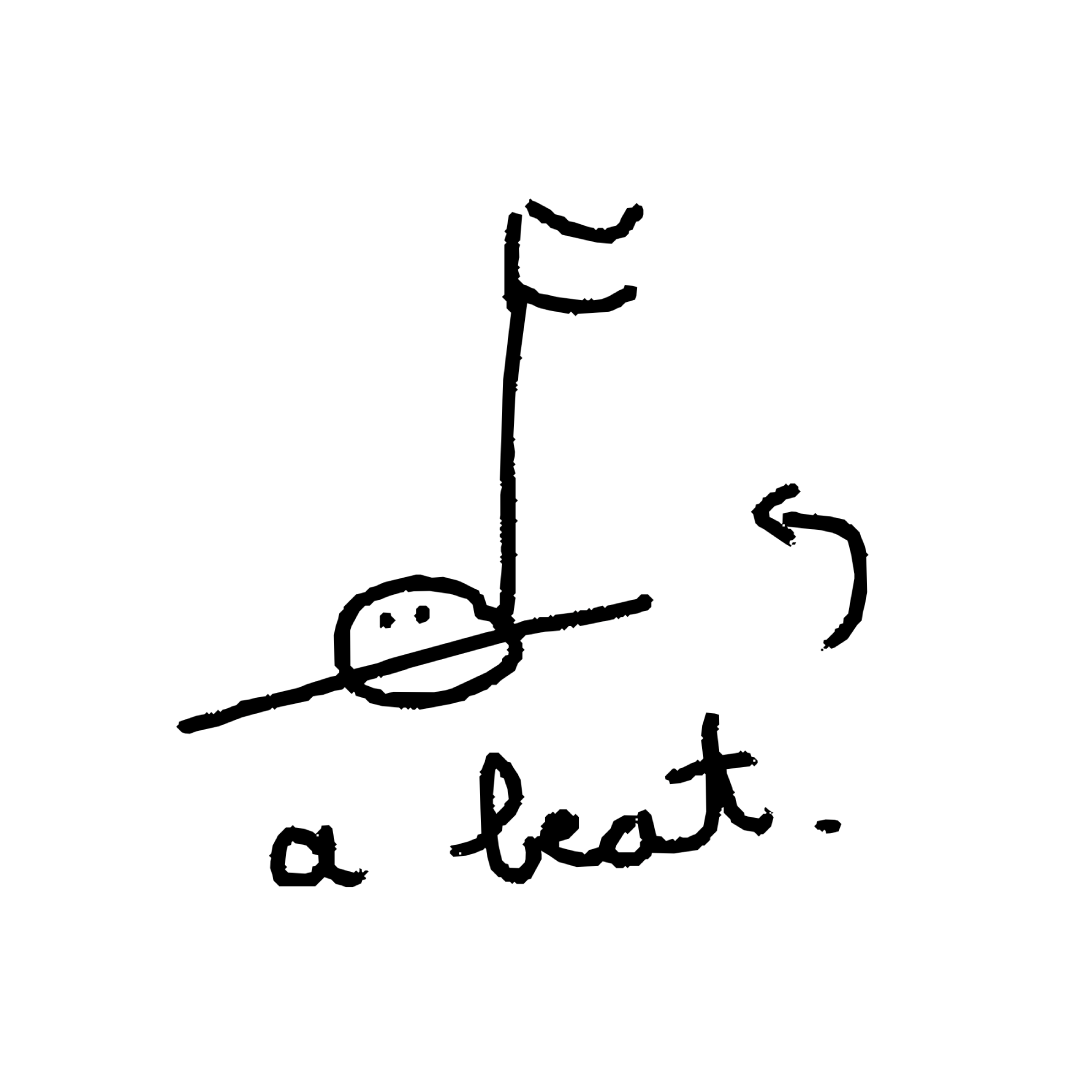 a beat.